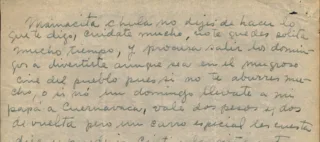 Mamacita chula no dejes de hacer lo
que te digo, cuidate mucho, no te quedes sola
mucho tiempo, y procura salir los domin-
gos a divertirte aunque sea en el mugroso
cine del pueblo pues si no te aburres mu-
cho, o si nó un domingo llevate a mi
papá a Cuernavaca, vale dos pesos y dos
de vuelta pero un carro especial les cuesta